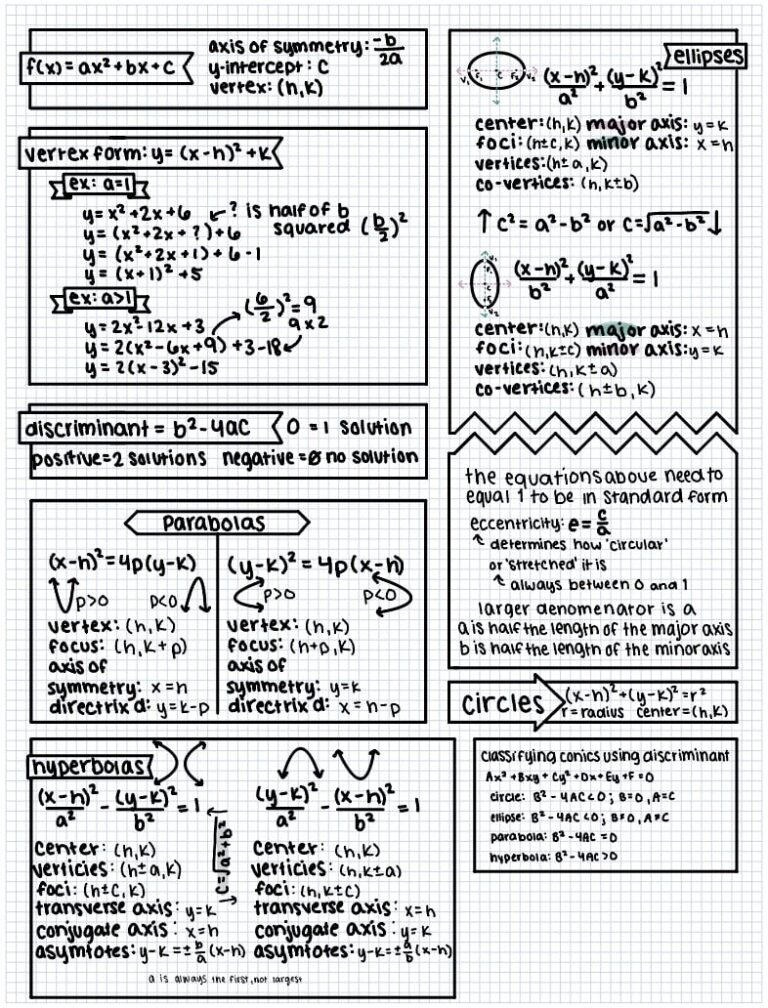 f(x) = ax² + bx + c
axis of symmetry: -b/2a
y-intercept: c
vertex: (h,k)
vertex form: y = (x-h)² + k
ex: a=1
y = x² + 2x + 6
y = (x² + 2x + ?) + 6
y = (x² + 2x + 1) + 6 - 1
y = (x+1)² + 5
? is half of b
squared (b/2)²
ex: a>1
y = 2x² - 12x + 3
y = 2(x² - 6x + 9) + 3 - 18
y = 2(x-3)² - 15
(6/2)² = 9
9 x 2
discriminant = b² - 4ac
0 = 1 solution
positive = 2 solutions negative = ∅ no solution
Parabolas
(x-h)² = 4p(y-k)
p>0 p<0
vertex: (h,k)
focus: (h,k+p)
axis of
symmetry: x=h
directrix d: y=k-p
(y-k)² = 4p(x-h)
p>0 p<0
vertex: (h,k)
focus: (h+p,k)
axis of
symmetry: y=k
directrix d: x=h-p
hyperbolas
(x-h)²/a² - (y-k)²/b² = 1
center: (h,k)
verticies: (h±a,k)
foci: (h±c,k)
transverse axis: y=k
conjugate axis: x=h
asymtotes: y-k=±b/a(x-h)
c=√a²+b²
(y-k)²/a² - (x-h)²/b² = 1
center: (h,k)
verticies: (h,k±a)
foci: (h,k±c)
transverse axis: x=h
conjugate axis: y=k
asymtotes: y-k=±a/b(x-h)
a is always the first, not largest
ellipses
V₁ F₁ C F₂ V₂
(x-h)²/a² + (y-k)²/b² = 1
center: (h,k) major axis: y=k
foci: (h±c,k) minor axis: x=h
vertices: (h±a,k)
co-vertices: (h,k±b)
↑ c² = a² - b² or c = √a²-b² ↓
(x-h)²/b² + (y-k)²/a² = 1
center: (h,k) major axis: x=h
foci: (h,k±c) minor axis: y=k
vertices: (h,k±a)
co-vertices: (h±b,k)
the equations above need to
equal 1 to be in standard form
eccentricity: e = c/a
determines how 'circular'
or 'stretched' it is
always between 0 and 1
larger denomenator is a
a is half the length of the major axis
b is half the length of the minor axis
circles
(x-h)² + (y-k)² = r²
r=radius center=(h,k)
classifying conics using discriminant
Ax² + Bxy + Cy² + Dx + Ey + F = 0
circle: B² - 4AC < 0; B=0, A=C
ellipse: B² - 4AC < 0; B≠0, A≠C
parabola: B² - 4AC = 0
hyperbola: B² - 4AC > 0